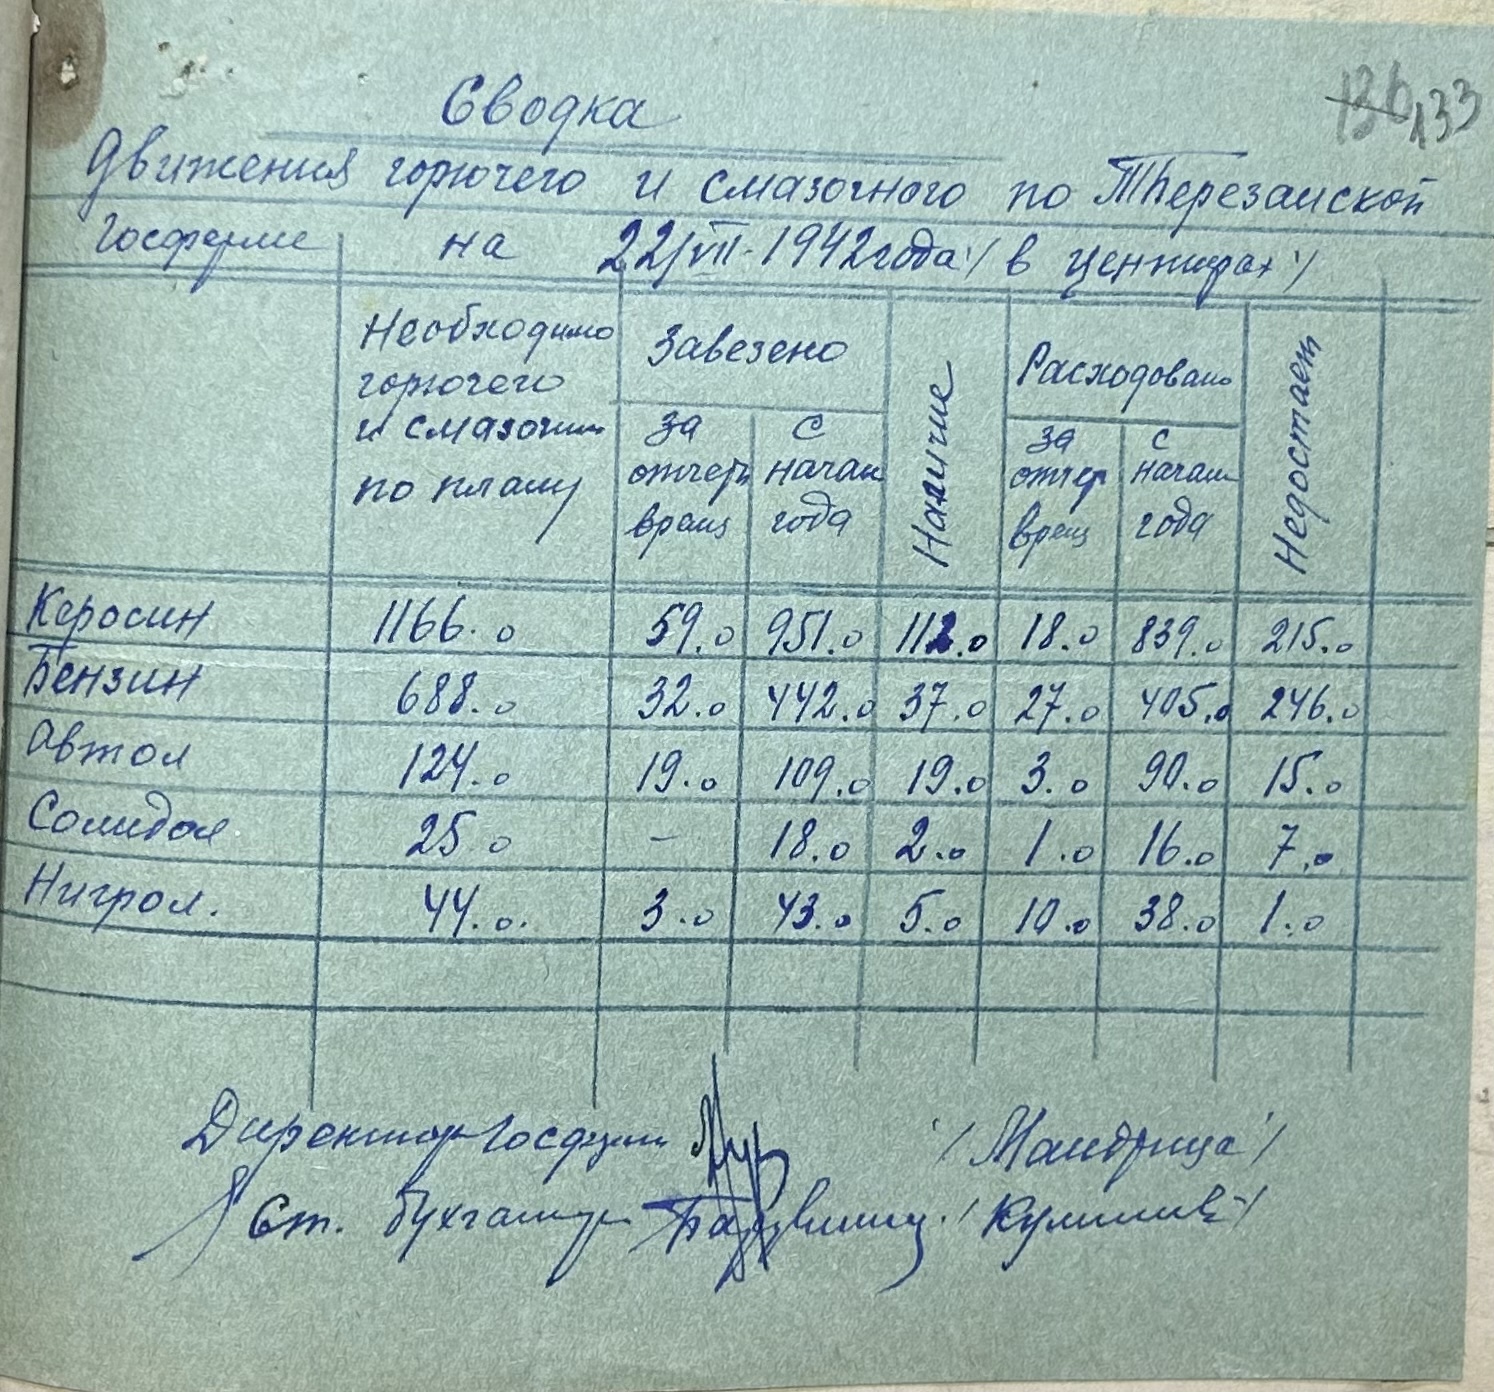 136 133
Сводка
Движения горючего и смазочного по Тперезанской
Госферме на 22/VII-1942 года /в центнерах/
Необходимо горючего и смазочн по плану | Завезено | Наличие | Расходовано | Недостает
за отчетн время | с начала года | за отчетн время | с начала года
Керосин 1166.0 59.0 951.0 112.0 18.0 839.0 215.0
Бензин 688.0 32.0 442.0 37.0 27.0 405.0 246.0
Автол 124.0 19.0 109.0 19.0 3.0 90.0 15.0
Солидол 25.0 — 18.0 2.0 1.0 16.0 7.0
Нигрол. 44.0. 3.0 43.0 5.0 10.0 38.0 1.0
Директор Госфермы /Мандрица/
Ст. бухгалтер